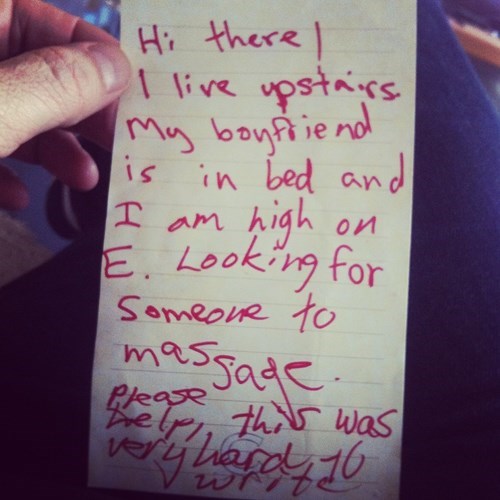 Hi there!
I live upstairs.
My boyfriend
is in bed and
I am high on
E. Looking for
someone to
massage.
please
help, this was
very hard to
write